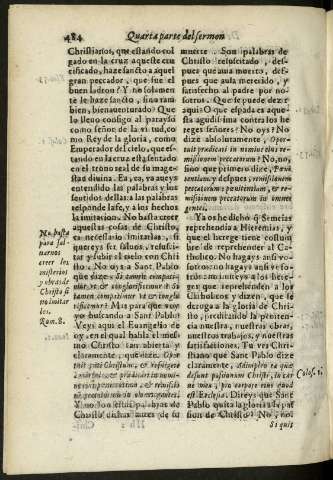 484 Quarta parte del sermon
Christianos, que estando col
gado en la cruz aqueste cru
cificado, haze sancto a aquel
gran peccador, que fue el
buen ladron? Y no solamen
te le haze sancto, sino tam
bien, bienauenturado? Que
lo lleuo consigo al parayso
como señor de la virtud, co-
mo Rey de la gloria, como
Emperador del cielo, que es-
tando en la cruz està sentado
en el trono real de su mages-
tad diuina. Ea, ea, ya aueys
entendido las palabras y los
sentidos dellas: a las palabras
responde la fe, y a los hechos
la imitacion. No basta creer
aquestas cosas de Christo,
es necessario imitarlas: si
quereys ser saluos, resusci-
tar y subir al cielo con Chri
sto. No oys a Sant Pablo
que dize: Si tamen compati-
mur, vt & conglorificemur: si
tamen compatimur vt & conglo
rificemur. Mas para que voy
yo buscando a Sant Pablo?
Veys aqui el Euangelio de
oy, en el qual habla el mes-
mo Christo tan abierta y
claramente, que dize. Opor-
tuit pati Christum, & resurgere
à mortuis, & prædicari in nomi-
ne eius pœnitentiam, & remissio-
nem peccatorum in omnes gentes.
Y no son estas palabras de
Christo dichas antes de su
No basta
para sal-
uarnos
creer los
misterios
y obras de
Christo si
no imitar
los.
Rom. 8.
muerte. Son palabras de
Christo resuscitado, des-
pues que auia muerto, des-
pues que auia merecido, y
satisfecho al padre por no-
sotros. Que se puede dezir
aqui? O que espada es aque-
sta agudissima contra los he
reges señores? No oys? No
dize absolutamente, Opor-
tuit prædicari in nomine eius re-
missionem peccatorum? No, no,
sino que primero dize, Pœni
tentiam: y despues remissionem
peccatorum: pœnitentiam, & re-
missionem peccatorum in omnes
gentes.
Ya os he dicho que Semeias
reprehendia a Hieremias, y
que el herege tiene costum
bre de reprehender al Ca-
tholico. No hagays ansi vo-
sotros: no hagays ansi voso-
tros: mas antes ruegoos a los
hereges que reprehenden a los
Catholicos y dizen, que se
deroga a la gloria de Chri-
sto, predicando la penitencia
nuestra, nuestras obras,
nuestros trabajos, y nuestras
satisfactiones. Tu vees Chri
stiano que Sant Pablo dize
claramente, Adimpleo ea quæ
desunt passionum Christi, in car
ne mea, pro corpore eius quod
est Ecclesia. Direys que Sant
Pablo quita la gloria a la pas
sion de Christo? No, no.
Coloss. 1.
Hh 2
Si quis